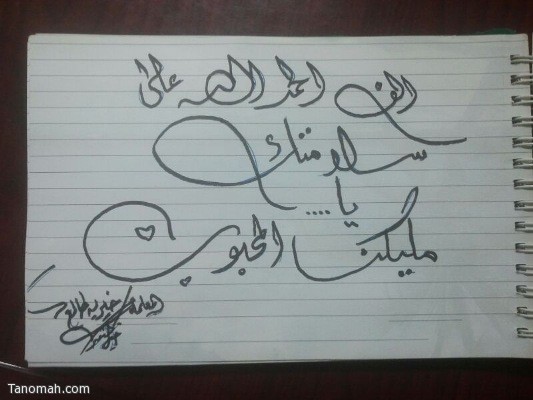 الف الحمد الله على
سلامتك
يا ....
مليكنا المحبوب
Tanomah.com